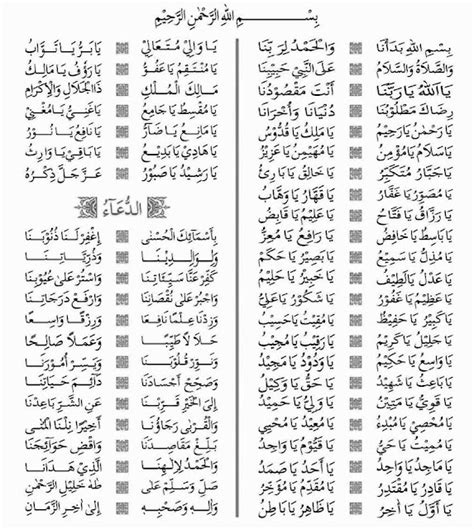 بِسْمِ اللهِ الرَّحْمٰنِ الرَّحِيْمِ
بِسْمِ اللهِ بَدَأْنَا وَالْحَمْدُ لِرَبِّنَا
وَالصَّلَاةُ وَالسَّلَامُ عَلَى النَّبِيِّ حَبِيْبِنَا
يَا اَللهُ يَا رَبَّنَا أَنْتَ مَقْصُوْدُنَا
رِضَاكَ مَطْلُوْبُنَا دُنْيَانَا وَأُخْرَانَا
يَا رَحْمٰنُ يَا رَحِيْمُ يَا مَلِكُ يَا قُدُّوْسُ
يَا سَلَامُ يَا مُؤْمِنُ يَا مُهَيْمِنُ يَا عَزِيْزُ
يَا جَبَّارُ يَا مُتَكَبِّرُ يَا خَالِقُ يَا بَارِئُ
يَا مُصَوِّرُ يَا غَفَّارُ يَا قَهَّارُ يَا وَهَّابُ
يَا رَزَّاقُ يَا فَتَّاحُ يَا عَلِيْمُ يَا قَابِضُ
يَا بَاسِطُ يَا خَافِضُ يَا رَافِعُ يَا مُعِزُّ
يَا مُذِلُّ يَا سَمِيْعُ يَا بَصِيْرُ يَا حَكَمُ
يَا عَدْلُ يَا لَطِيْفُ يَا خَبِيْرُ يَا حَلِيْمُ
يَا عَظِيْمُ يَا غَفُوْرُ يَا شَكُوْرُ يَا عَلِيُّ
يَا كَبِيْرُ يَا حَفِيْظُ يَا مُقِيْتُ يَا حَسِيْبُ
يَا جَلِيْلُ يَا كَرِيْمُ يَا رَقِيْبُ يَا مُجِيْبُ
يَا وَاسِعُ يَا حَكِيْمُ يَا وَدُوْدُ يَا مَجِيْدُ
يَا بَاعِثُ يَا شَهِيْدُ يَا حَقُّ يَا وَكِيْلُ
يَا قَوِيُّ يَا مَتِيْنُ يَا وَلِيُّ يَا حَمِيْدُ
يَا مُحْصِيْ يَا مُبْدِئُ يَا مُعِيْدُ يَا مُحْيِيْ
يَا مُمِيْتُ يَا حَيُّ يَا قَيُّوْمُ يَا وَاجِدُ
يَا مَاجِدُ يَا وَاحِدُ يَا أَحَدُ يَا صَمَدُ
يَا قَادِرُ يَا مُقْتَدِرُ يَا مُقَدِّمُ يَا مُؤَخِّرُ
يَا أَوَّلُ يَا آخِرُ يَا ظَاهِرُ يَا بَاطِنُ
يَا وَالِيْ يَا مُتَعَالِيْ يَا بَرُّ يَا تَوَّابُ
يَا مُنْتَقِمُ يَا عَفُوُّ يَا رَؤُفُ يَا مَالِكُ
مَالِكَ الْمُلْكِ ذَا الْجَلَالِ وَالْإِكْرَامِ
يَا مُقْسِطُ يَا جَامِعُ يَا غَنِيُّ يَا مُغْنِيْ
يَا مَانِعُ يَا ضَآرُّ يَا نَافِعُ يَا نُوْرُ
يَا هَادِيْ يَا بَدِيْعُ يَا بَاقِيْ يَا وَارِثُ
يَا رَشِيْدُ يَا صَبُوْرُ عَزَّ جَلَّ ذِكْرُهُ
الدُّعَآءُ
بِأَسْمَائِكَ الْحُسْنٰى اِغْفِرْ لَنَا ذُنُوْبَنَا
وَلِوَالِدِيْنَا وَذُرِّيَّاتِنَا
كَفِّرْ عَنَّا سَيِّئَاتِنَا وَاسْتُرْ عَلٰى عُيُوْبِنَا
وَاجْبُرْ عَلٰى نُقْصَانِنَا وَارْفَعْ دَرَجَاتِنَا
وَزِدْنَا عِلْمًا نَافِعًا وَرِزْقًا وَاسِعًا
حَلَالًا طَيِّبًا وَعَمَلًا صَالِحًا
وَنَوِّرْ قُلُوْبَنَا وَيَسِّرْ أُمُوْرَنَا
وَصَحِّحْ أَجْسَادَنَا دَائِمَ حَيَاتِنَا
إِلَى الْخَيْرِ قَرِّبْنَا عَنِ الشَّرِّ بَاعِدْنَا
وَالْقُرْبٰى رَجَاؤُنَا أَخِيْرًا نِلْنَا الْمُنٰى
بَلِّغْ مَقَاصِدَنَا وَاقْضِ حَوَائِجَنَا
وَالْحَمْدُ لِإِلٰهِنَا الَّذِيْ هَدَانَا
صَلِّ وَسَلِّمْ عَلٰى طٰهَ خَلِيْلِ الرَّحْمٰنِ
وَآلِهِ وَصَحْبِهِ إِلٰى آخِرِ الزَّمَانِ